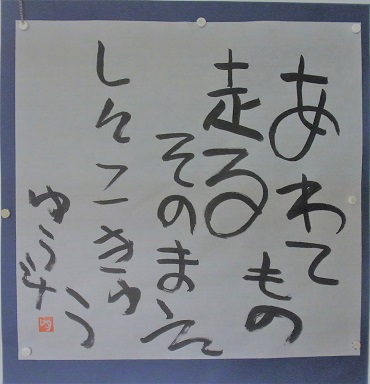 あわてもの
走る
そのまえ
しんこきゅう
ゆう